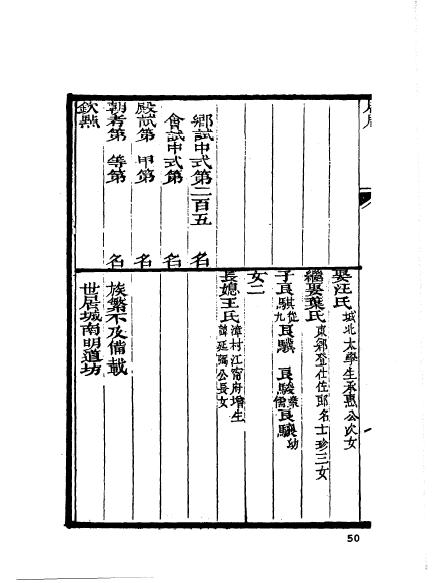 娶汪氏城北太學生承惠公次女
繼娶葉氏東鄉登仕佐郎名士珍三女
子良騏從九良驥 良駿業儒良驤幼
女二
長媳王氏漳村江甯府增生諱廷弼公長女
族繁不及備載
世居城南明道坊
鄉試中式第二百五 名
會試中式第 名
殿試第 甲第 名
朝考第 等第 名
欽點
50